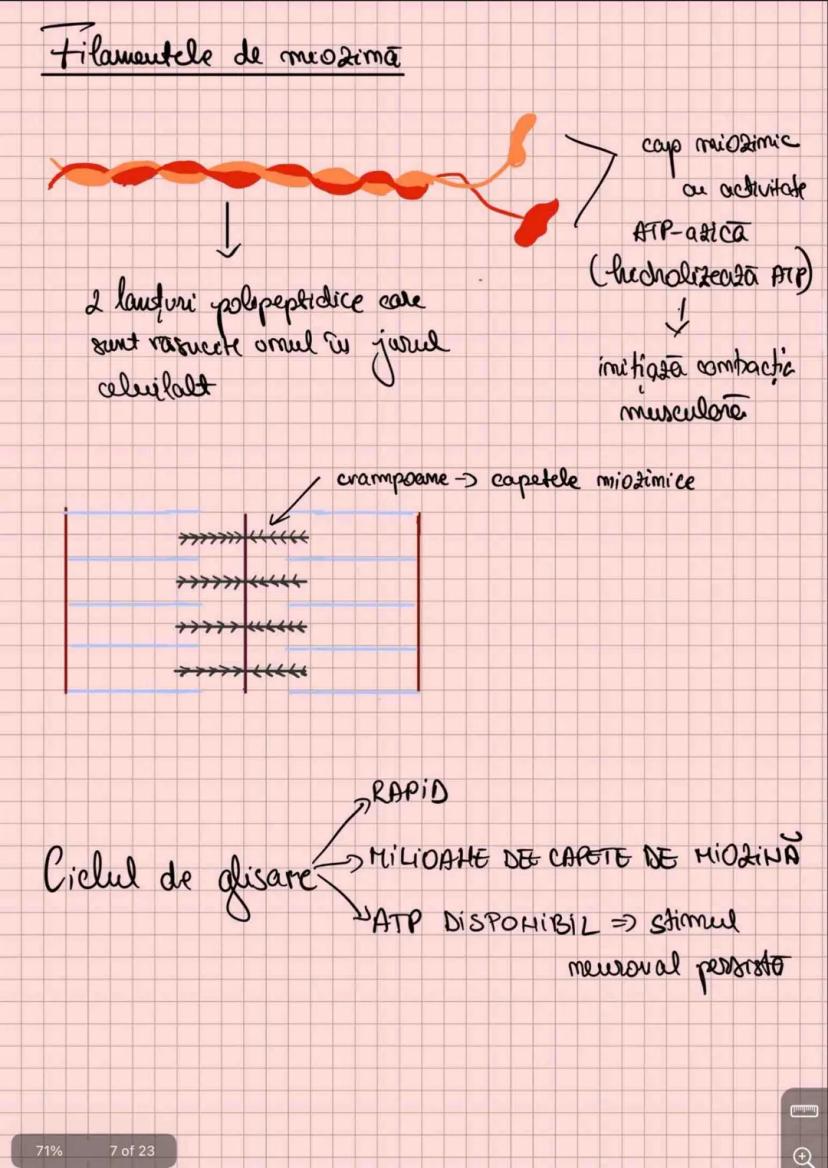 Filamentele de miozină
cap miozinic
cu activitate
ATP-azică
(hidrolizează ATP)
2 lanțuri polipeptidice care
sunt răsucite unul în jurul
celuilalt
inițiază contracția
musculară
crampoane → capetele miozinice
RAPID
Ciclul de glisare
MILIOANE DE CAPETE DE MIOZINĂ
ATP DISPONIBIL ⇒ stimul
neuronal persistă
71% 7 of 23